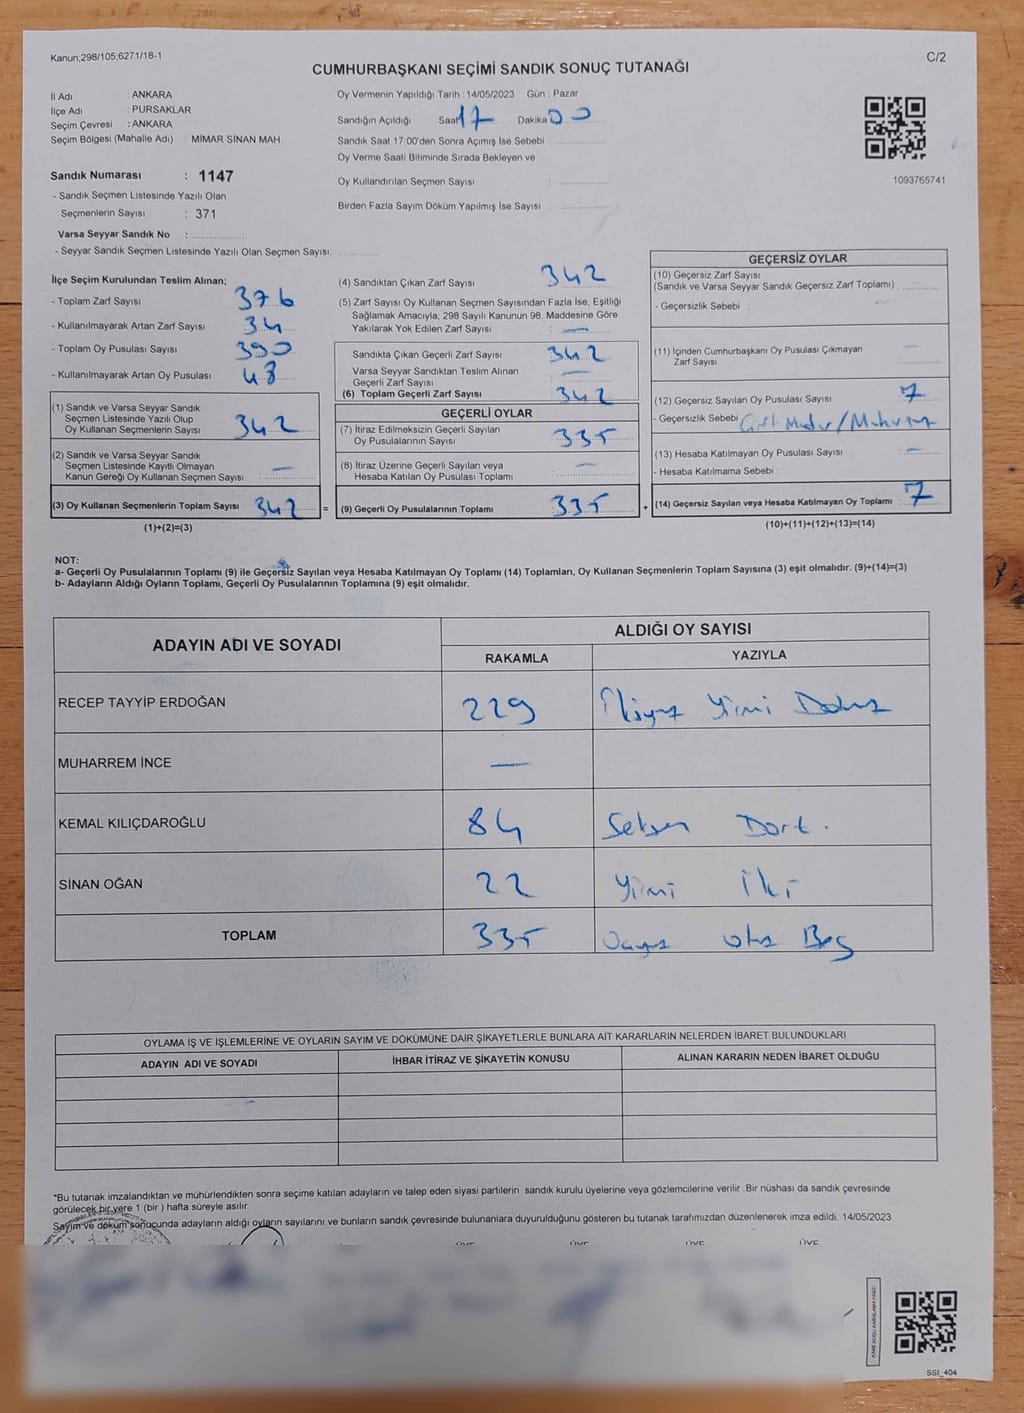 Kanun,298/105,6271/18-1
C/2
CUMHURBAŞKANI SEÇİMİ SANDIK SONUÇ TUTANAĞI
İl Adı : ANKARA
İlçe Adı : PURSAKLAR
Seçim Çevresi : ANKARA
Seçim Bölgesi (Mahalle Adı) : MİMAR SİNAN MAH.
Sandık Numarası : 1147
- Sandık Seçmen Listesinde Yazılı Olan
Seçmenlerin Sayısı : 371
Varsa Seyyar Sandık No :
- Seyyar Sandık Seçmen Listesinde Yazılı Olan Seçmen Sayısı:
Oy Vermenin Yapıldığı Tarih : 14/05/2023 Gün : Pazar
Sandığın Açıldığı Saat 17 Dakika 00
Sandık Saat 17:00'den Sonra Açımış İse Sebebi :
Oy Verme Saati Bitiminde Sırada Bekleyen ve
Oy Kullandırılan Seçmen Sayısı :
Birden Fazla Sayım Döküm Yapılmış İse Sayısı :
1093765741
İlçe Seçim Kurulundan Teslim Alınan;
- Toplam Zarf Sayısı 376
- Kullanılmayarak Artan Zarf Sayısı 34
- Toplam Oy Pusulası Sayısı 390
- Kullanılmayarak Artan Oy Pusulası 48
(1) Sandık ve Varsa Seyyar Sandık
Seçmen Listesinde Yazılı Olup
Oy Kullanan Seçmenlerin Sayısı 342
(2) Sandık ve Varsa Seyyar Sandık
Seçmen Listesinde Kayıtlı Olmayan
Kanun Gereği Oy Kullanan Seçmen Sayısı : —
(3) Oy Kullanan Seçmenlerin Toplam Sayısı 342 =
(1)+(2)=(3)
(4) Sandıktan Çıkan Zarf Sayısı : 342
(5) Zarf Sayısı Oy Kullanan Seçmen Sayısından Fazla İse, Eşitliği
Sağlamak Amacıyla; 298 Sayılı Kanunun 98. Maddesine Göre
Yakılarak Yok Edilen Zarf Sayısı : —
Sandıkta Çıkan Geçerli Zarf Sayısı : 342
Varsa Seyyar Sandıktan Teslim Alınan
Geçerli Zarf Sayısı —
(6) Toplam Geçerli Zarf Sayısı : 342
GEÇERLİ OYLAR
(7) İtiraz Edilmeksizin Geçerli Sayılan
Oy Pusulalarının Sayısı : 335
(8) İtiraz Üzerine Geçerli Sayılan veya
Hesaba Katılan Oy Pusulası Toplamı : —
(9) Geçerli Oy Pusulalarının Toplamı : 335 +
GEÇERSİZ OYLAR
(10) Geçersiz Zarf Sayısı
(Sandık ve Varsa Seyyar Sandık Geçersiz Zarf Toplamı) :
- Geçersizlik Sebebi :
(11) İçinden Cumhurbaşkanı Oy Pusulası Çıkmayan
Zarf Sayısı : —
(12) Geçersiz Sayılan Oy Pusulası Sayısı : 7
- Geçersizlik Sebebi
(13) Hesaba Katılmayan Oy Pusulası Sayısı : —
- Hesaba Katılmama Sebebi :
(14) Geçersiz Sayılan veya Hesaba Katılmayan Oy Toplamı : 7
(10)+(11)+(12)+(13)=(14)
NOT:
a- Geçerli Oy Pusulalarının Toplamı (9) ile Geçersiz Sayılan veya Hesaba Katılmayan Oy Toplamı (14) Toplamları, Oy Kullanan Seçmenlerin Toplam Sayısına (3) eşit olmalıdır. (9)+(14)=(3)
b- Adayların Aldığı Oyların Toplamı, Geçerli Oy Pusulalarının Toplamına (9) eşit olmalıdır.
ADAYIN ADI VE SOYADI ALDIĞI OY SAYISI
RAKAMLA YAZIYLA
RECEP TAYYİP ERDOĞAN 229 İkiyüz Yirmi Dokuz
MUHARREM İNCE —
KEMAL KILIÇDAROĞLU 84 Seksen Dört.
SİNAN OĞAN 22 Yirmi İki
TOPLAM 335 Üçyüz otuz Beş
OYLAMA İŞ VE İŞLEMLERİNE VE OYLARIN SAYIM VE DÖKÜMÜNE DAİR ŞİKAYETLERLE BUNLARA AİT KARARLARIN NELERDEN İBARET BULUNDUKLARI
ADAYIN ADI VE SOYADI İHBAR İTİRAZ VE ŞİKAYETİN KONUSU ALINAN KARARIN NEDEN İBARET OLDUĞU
*Bu tutanak imzalandıktan ve mühürlendikten sonra seçime katılan adayların ve talep eden siyasi partilerin sandık kurulu üyelerine veya gözlemcilerine verilir .Bir nüshası da sandık çevresinde
görülecek bir yere 1 (bir ) hafta süreyle asılır.
Sayım ve döküm sonucunda adayların aldığı oyların sayılarını ve bunların sandık çevresinde bulunanlara duyurulduğunu gösteren bu tutanak tarafımızdan düzenlenerek imza edildi. 14/05/2023
ÜYE ÜYE ÜYE ÜYE
SSI_404